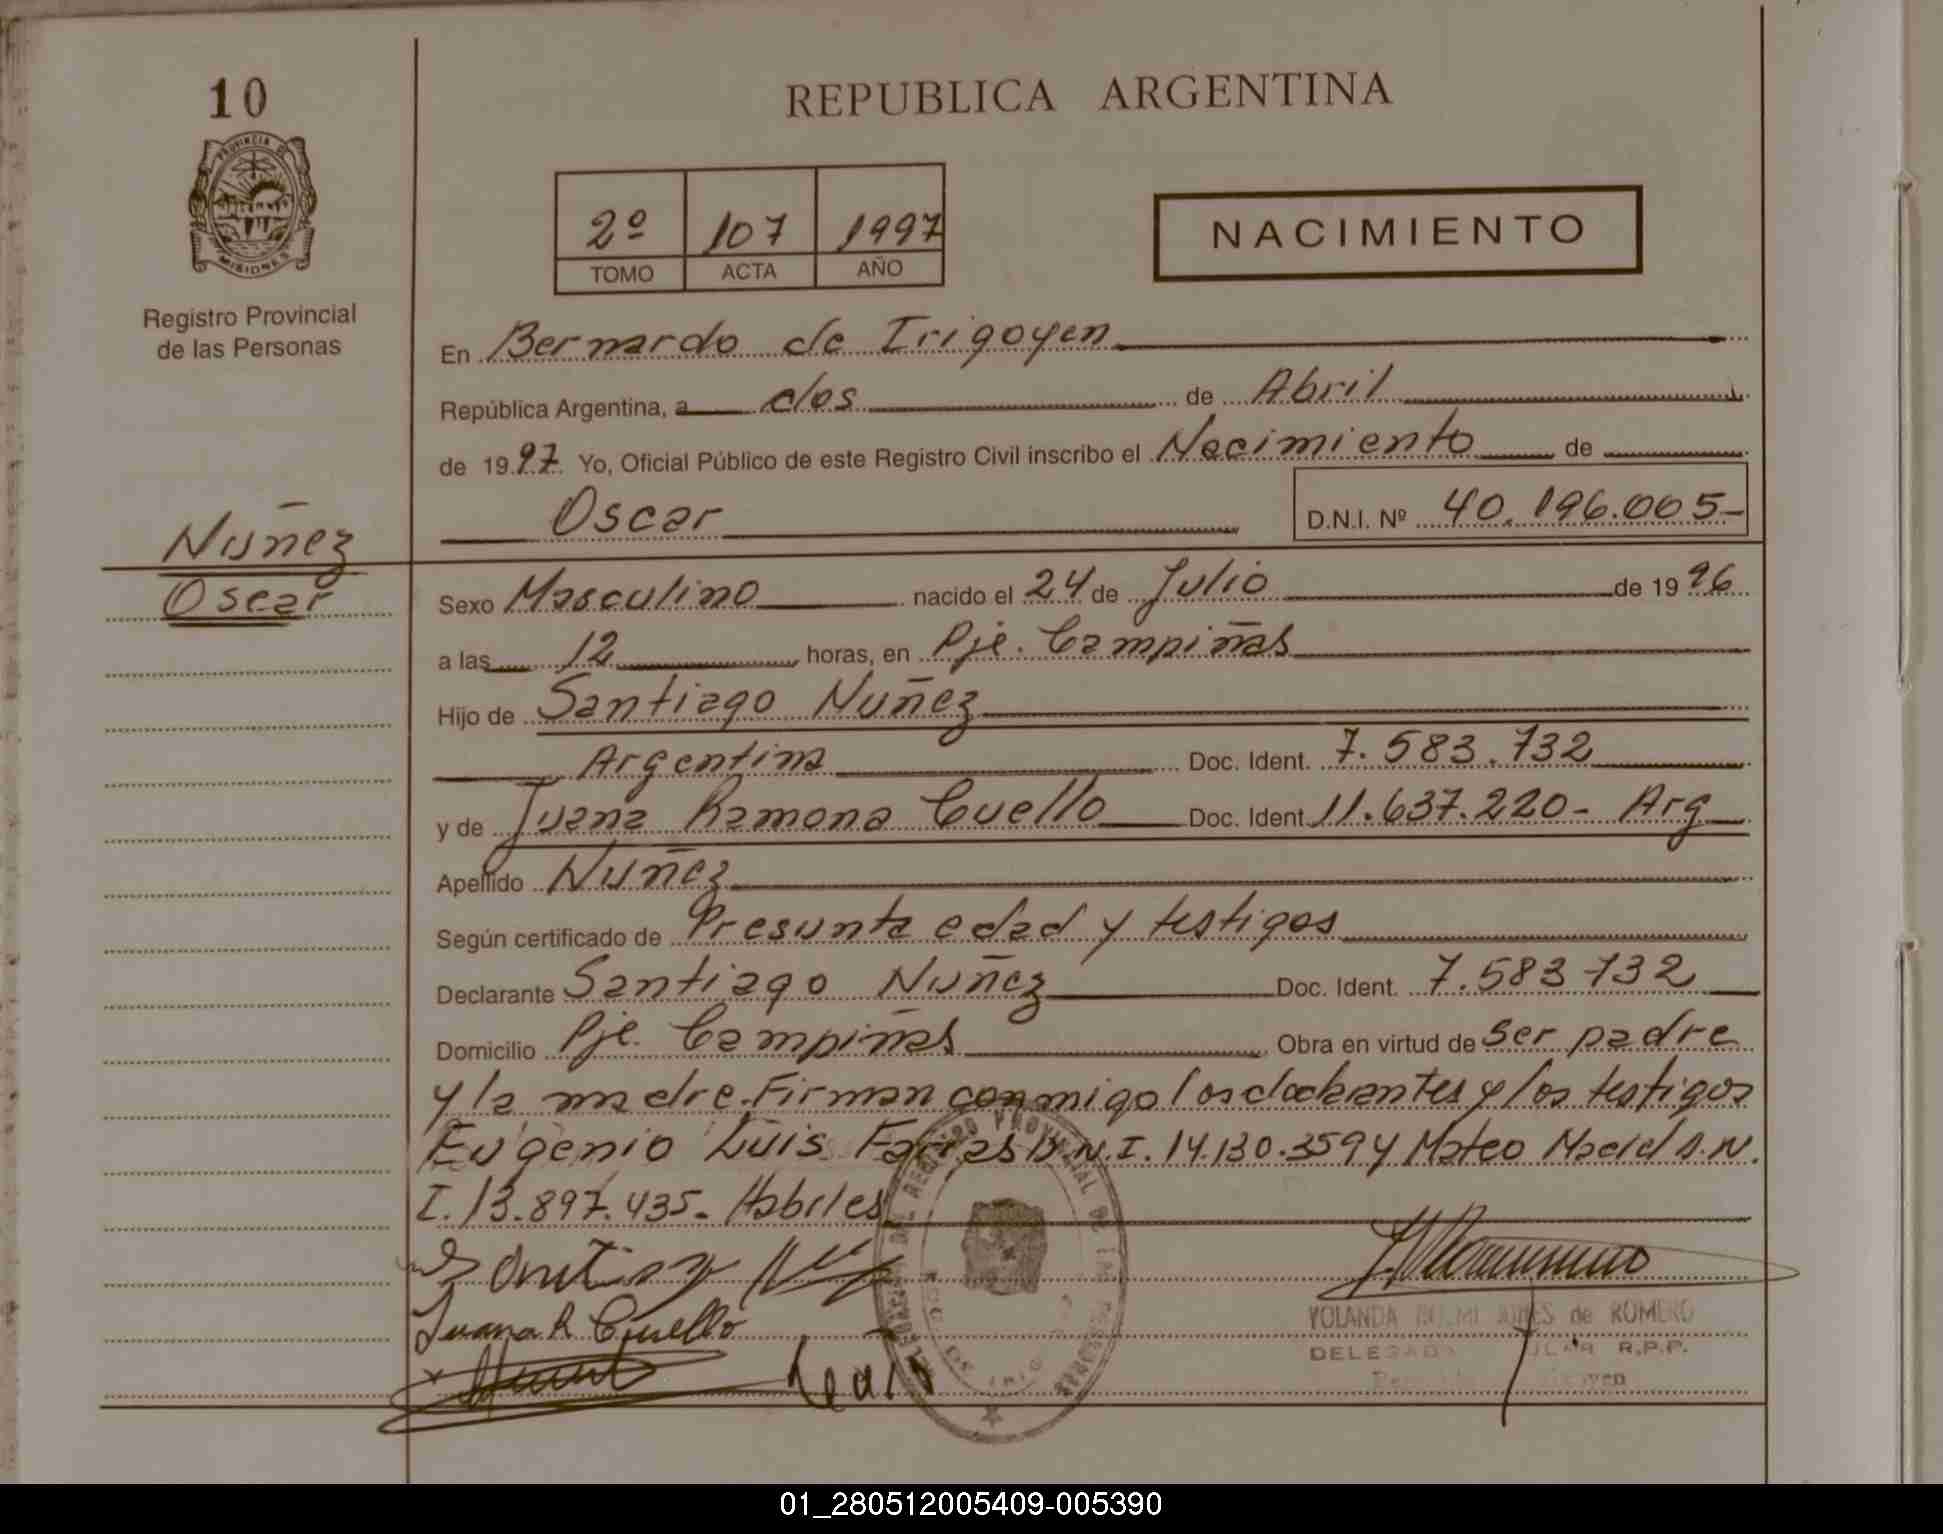 10
REPUBLICA ARGENTINA
PROVINCIA DE
MISIONES
2º 107 1997
TOMO ACTA AÑO
NACIMIENTO
Registro Provincial
de las Personas
En Bernardo de Irigoyen
República Argentina, a dos de Abril
de 1997 Yo, Oficial Público de este Registro Civil inscribo el Nacimiento de
Oscar D.N.I. Nº 40.196.005-
Nuñez
Oscar
Sexo Masculino nacido el 24 de Julio de 1996
a las 12 horas, en Pje. Campiñas
Hijo de Santiago Nuñez
Argentina Doc. Ident. 7.583.732
y de Juana Ramona Cuello Doc. Ident. 11.637.220- Arg
Apellido Nuñez
Según certificado de Presunta edad y testigos
Declarante Santiago Nuñez Doc. Ident. 7.583 732
Domicilio Pje. Campiñas Obra en virtud de Ser padre
y la madre. Firman conmigo los y los testigos
Eugenio Luis Farias D.N.I. 14.130.359 y Mateo Maciel D.N.
I. 13.897.435- Habiles
Juana R Cuello
YOLANDA de ROMERO
DELEGADA R.P.P.
REGISTRO PROVINCIAL DE LAS PERSONAS
01_280512005409-005390